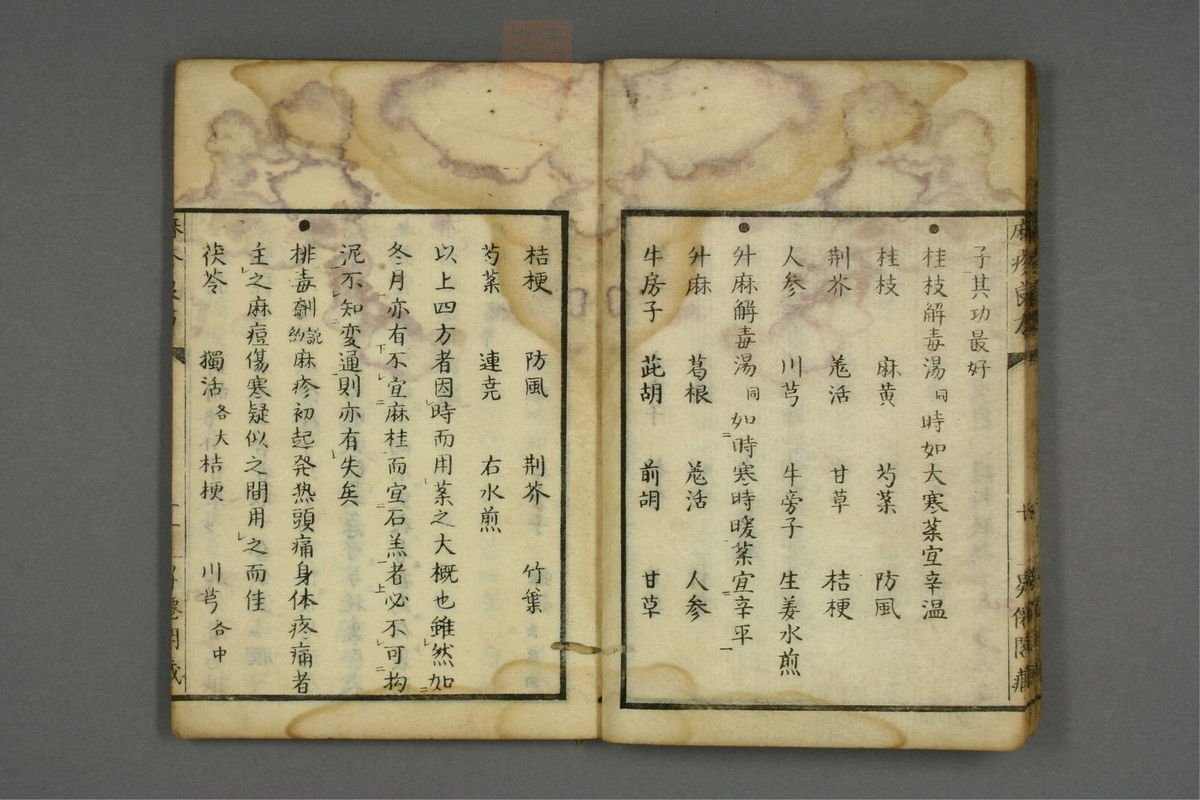 子其功最好
●桂枝解毒湯同時如大寒薬宜辛温
桂枝　麻黄　芍薬　防風
荆芥　羗活　甘草　桔梗
人参　川芎　牛旁子　生姜水煎
●升麻解毒湯同如時寒時暖薬宜辛平
升麻　葛根　羗活　人参
牛房子　茈胡　前胡　甘草
桔梗　防風　荆芥　竹葉
芍薬　連尭　右水煎
以上四方者因時而用薬之大概也雖然如
冬月亦有不宜麻桂而宜石羔者必不可拘
泥不知変通則亦有失矣
●排毒劑説約麻疹初起発热頭痛身体疼痛者
主之麻痘傷寒疑似之間用之而佳
茯苓　獨活各大桔梗　川芎各中